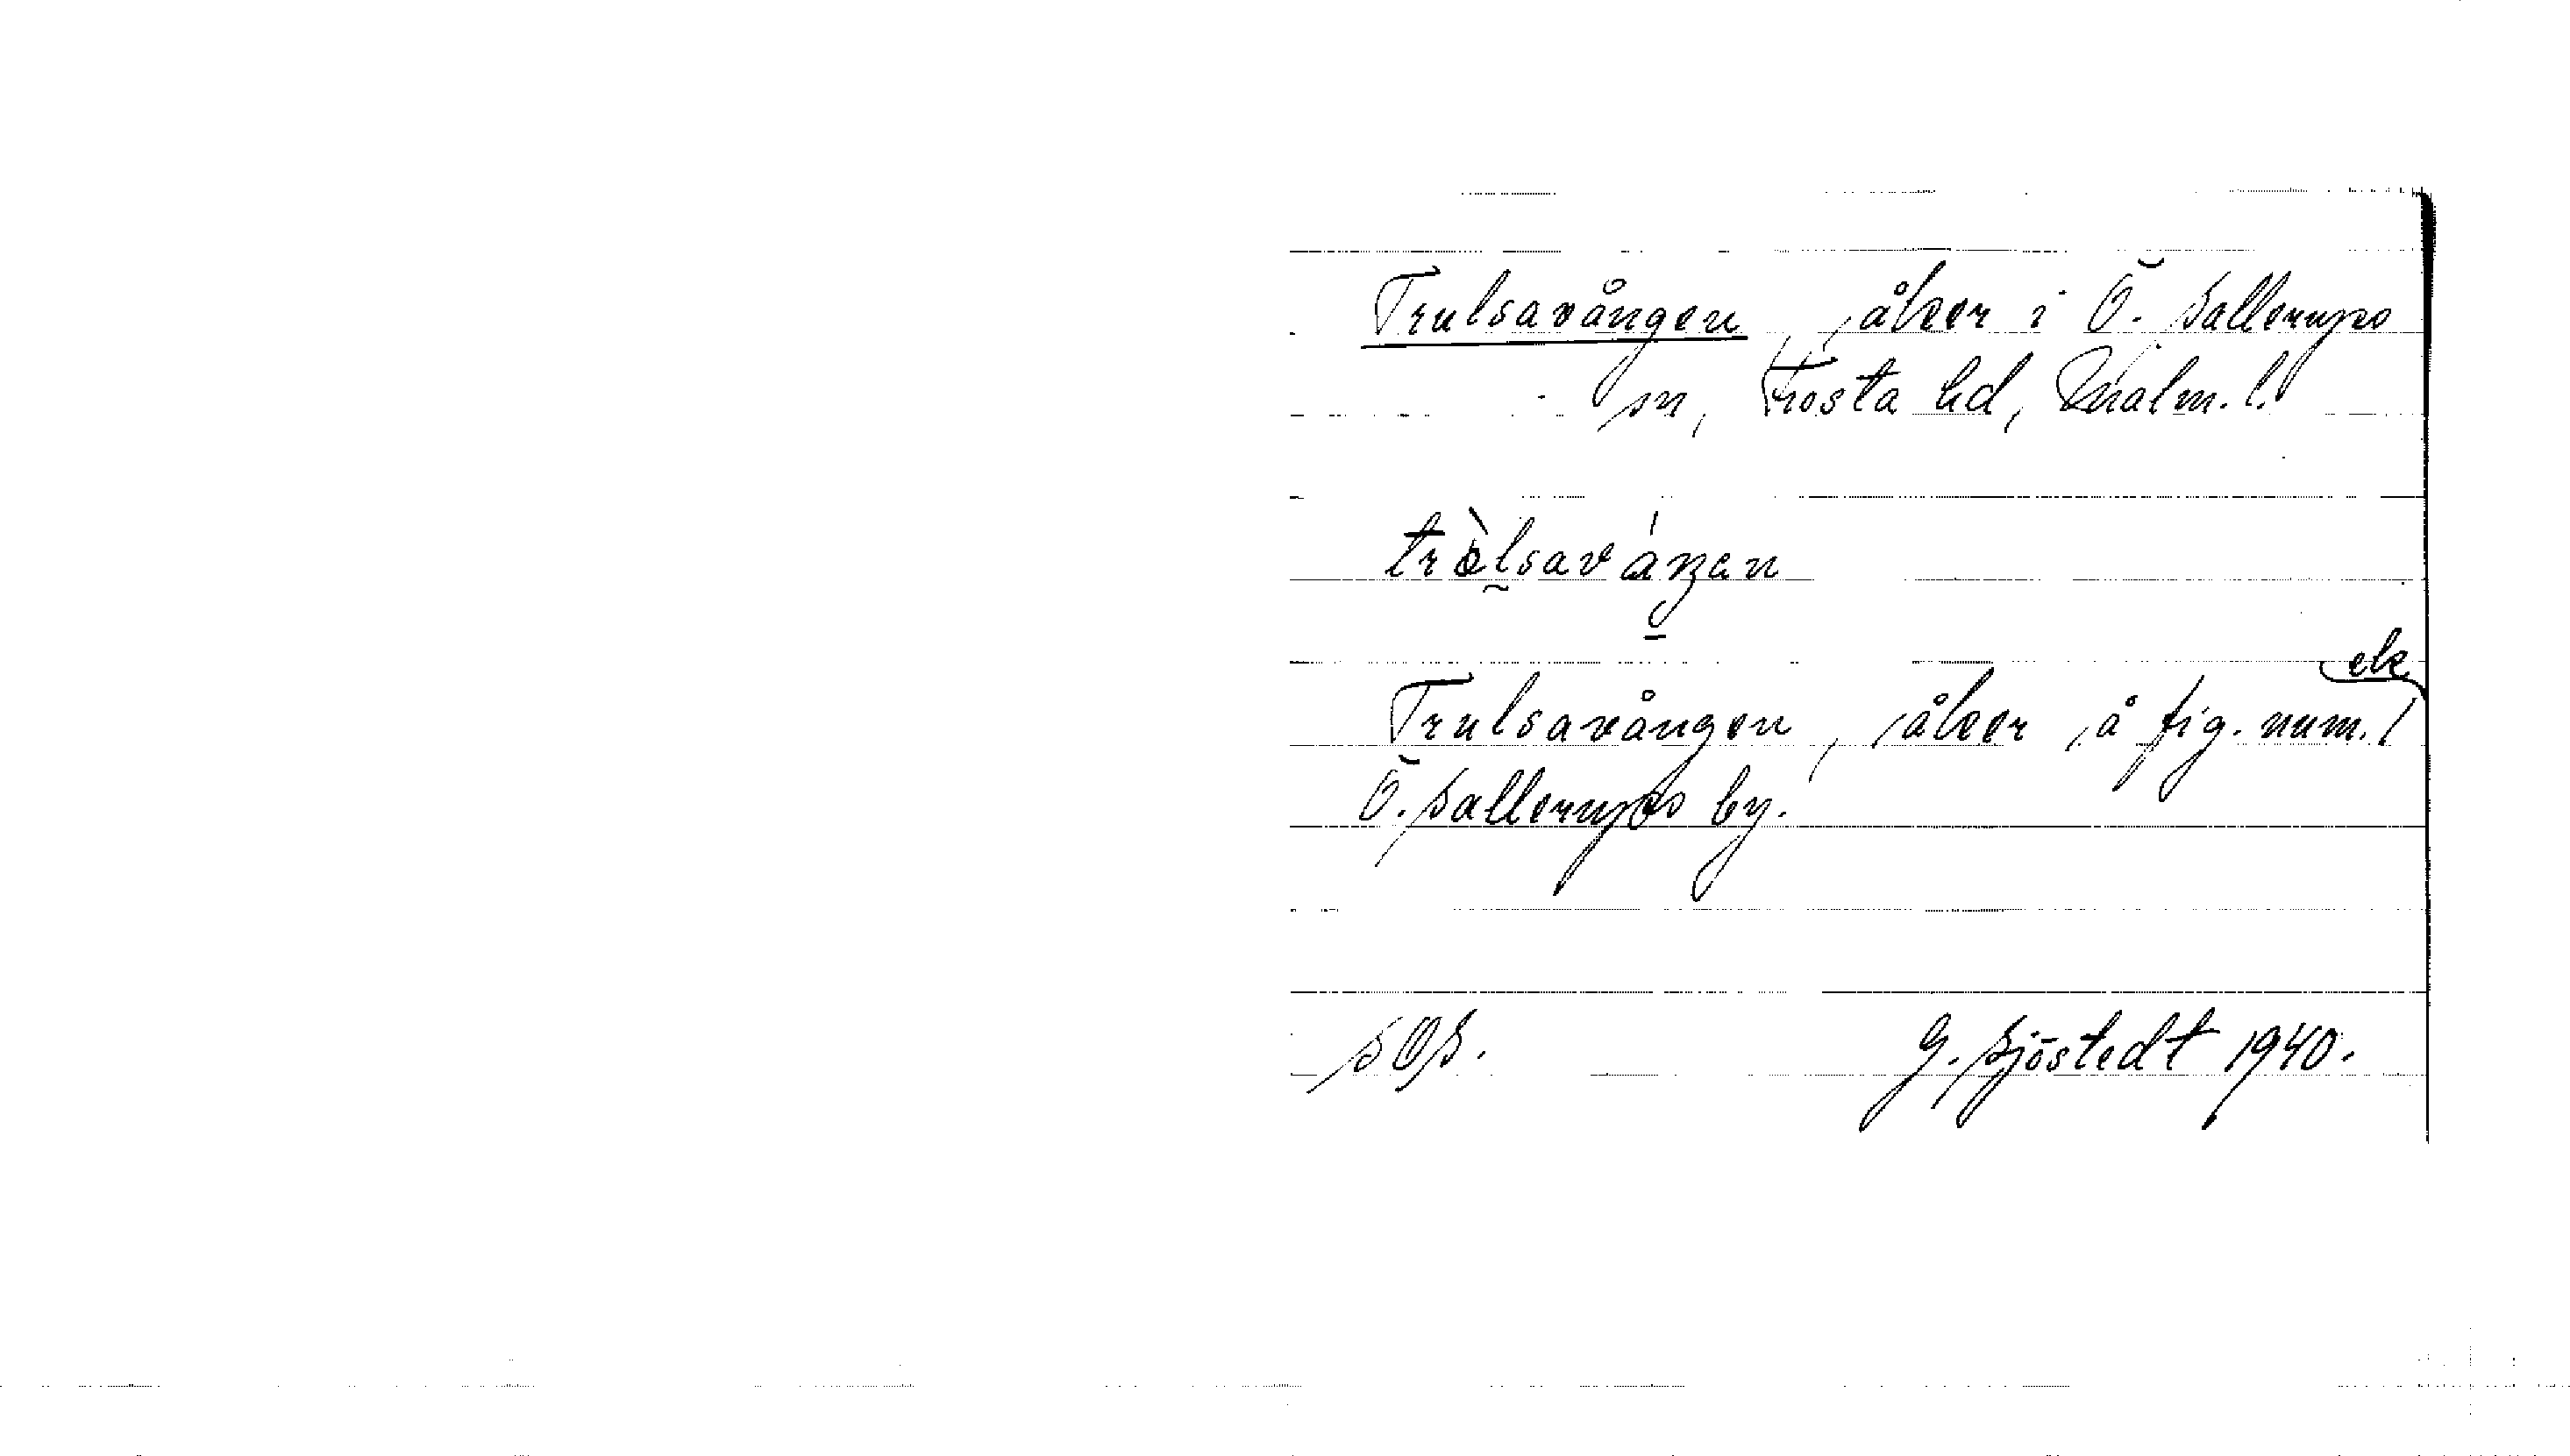 Trulsavången, åker i Ö. Sallerups
sn, Frosta hd, Malm. l.
tròlsaváŋan
Trulsavången, åker å fig. num. 1 ek
Ö. Sallerups by.
SOS. G. Sjöstedt 1940.